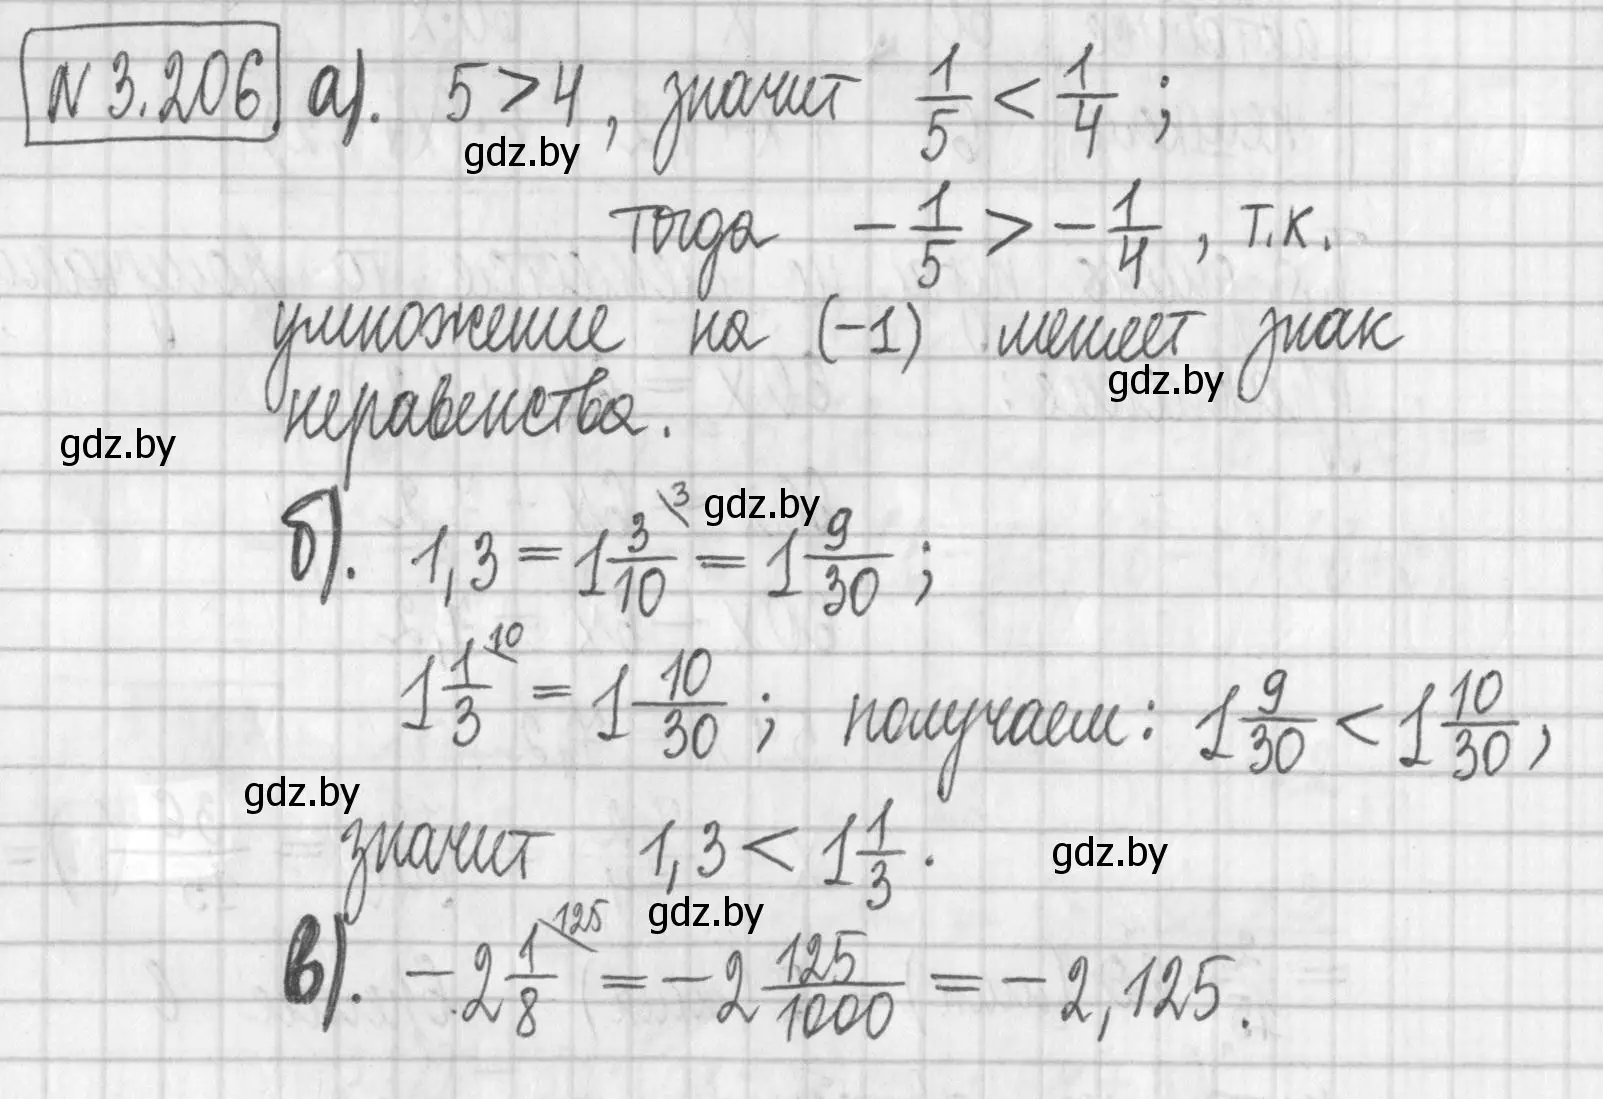 N 3.206 а). 5 > 4, значит 1/5 < 1/4 ;
gdz.by
тогда -1/5 > -1/4 , т.к.
умножение на (-1) меняет знак
gdz.by
неравенства.
gdz.by
gdz.by
б). 1,3 = 1 3/10 \3 = 1 9/30 ;
1 1/3 \10 = 1 10/30 ; получаем: 1 9/30 < 1 10/30 ,
gdz.by
значит 1,3 < 1 1/3 .
gdz.by
gdz.by
в). -2 1/8 \125 = -2 125/1000 = -2,125.